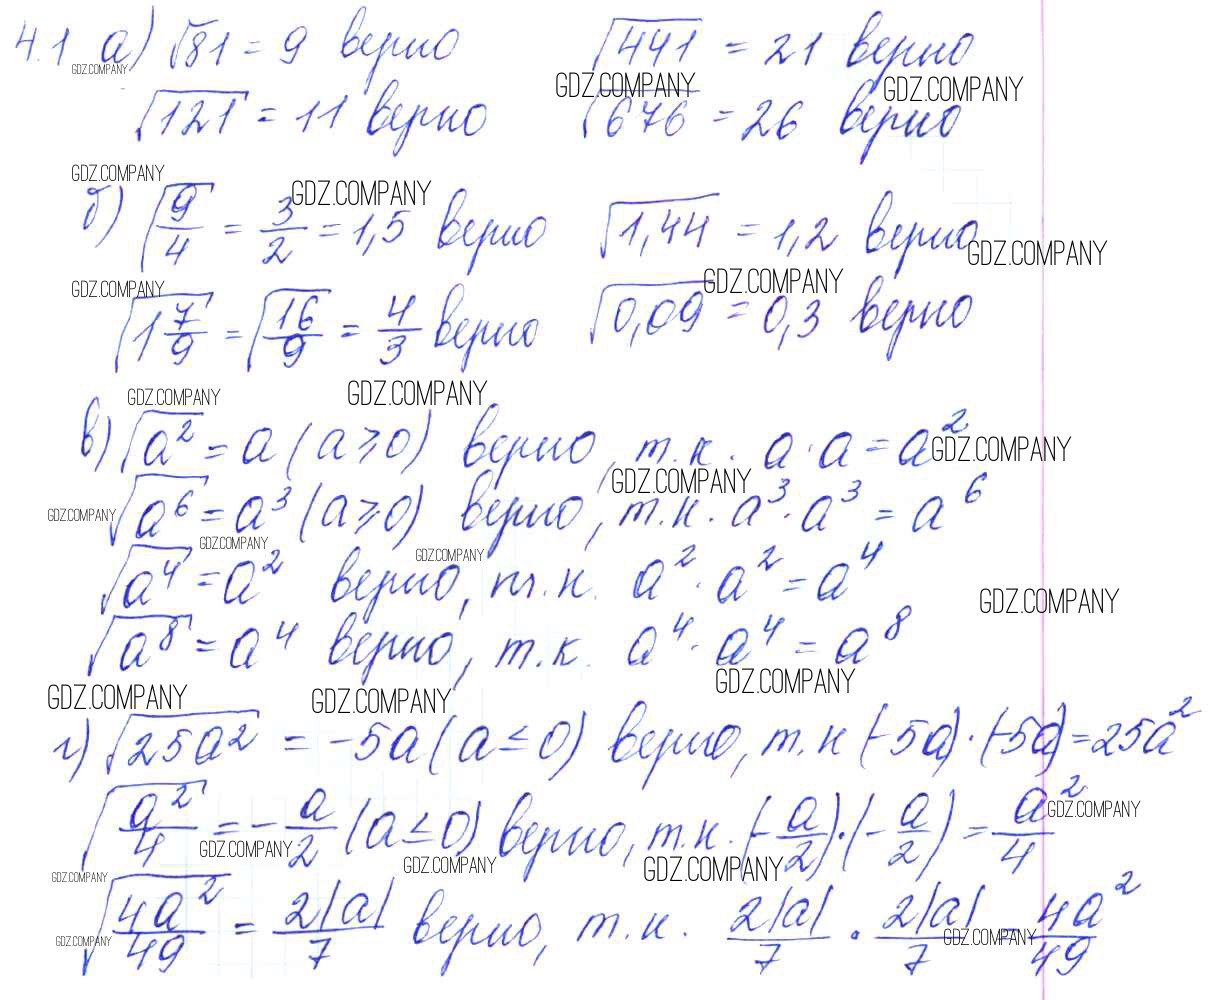 4.1 а) √81 = 9 верно √441 = 21 верно
GDZ.COMPANY GDZ.COMPANY GDZ.COMPANY
√121 = 11 верно √676 = 26 верно
GDZ.COMPANY GDZ.COMPANY
б) √(9/4) = 3/2 = 1,5 верно √1,44 = 1,2 верно
GDZ.COMPANY
GDZ.COMPANY GDZ.COMPANY
√(1 7/9) = √(16/9) = 4/3 верно √0,09 = 0,3 верно
GDZ.COMPANY GDZ.COMPANY
в) √a² = a (a ≥ 0) верно, т.к. a · a = a²
GDZ.COMPANY
GDZ.COMPANY
√a⁶ = a³ (a ≥ 0) верно, т.к. a³ · a³ = a⁶
GDZ.COMPANY
GDZ.COMPANY GDZ.COMPANY
√a⁴ = a² верно, т.к. a² · a² = a⁴
GDZ.COMPANY
√a⁸ = a⁴ верно, т.к. a⁴ · a⁴ = a⁸
GDZ.COMPANY GDZ.COMPANY GDZ.COMPANY
г) √25a² = -5a (a ≤ 0) верно, т.к (-5a) · (-5a) = 25a²
√(a²/4) = -a/2 (a ≤ 0) верно, т.к. (-a/2) · (-a/2) = a²/4
GDZ.COMPANY
GDZ.COMPANY GDZ.COMPANY GDZ.COMPANY
GDZ.COMPANY
√(4a²/49) = 2|a|/7 верно, т.к. 2|a|/7 · 2|a|/7 = 4a²/49
GDZ.COMPANY GDZ.COMPANY